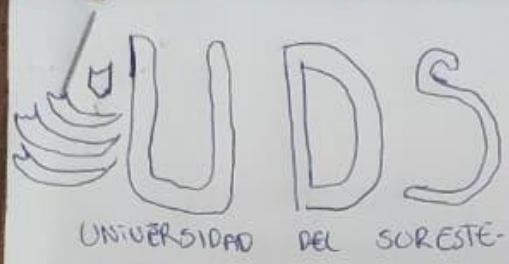 UDS
UNIVERSIDAD DEL SURESTE-